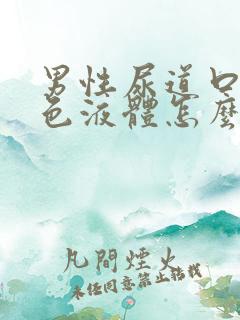 男性尿道口
色液體怎麼
凡間煙火
未经同意禁止转载